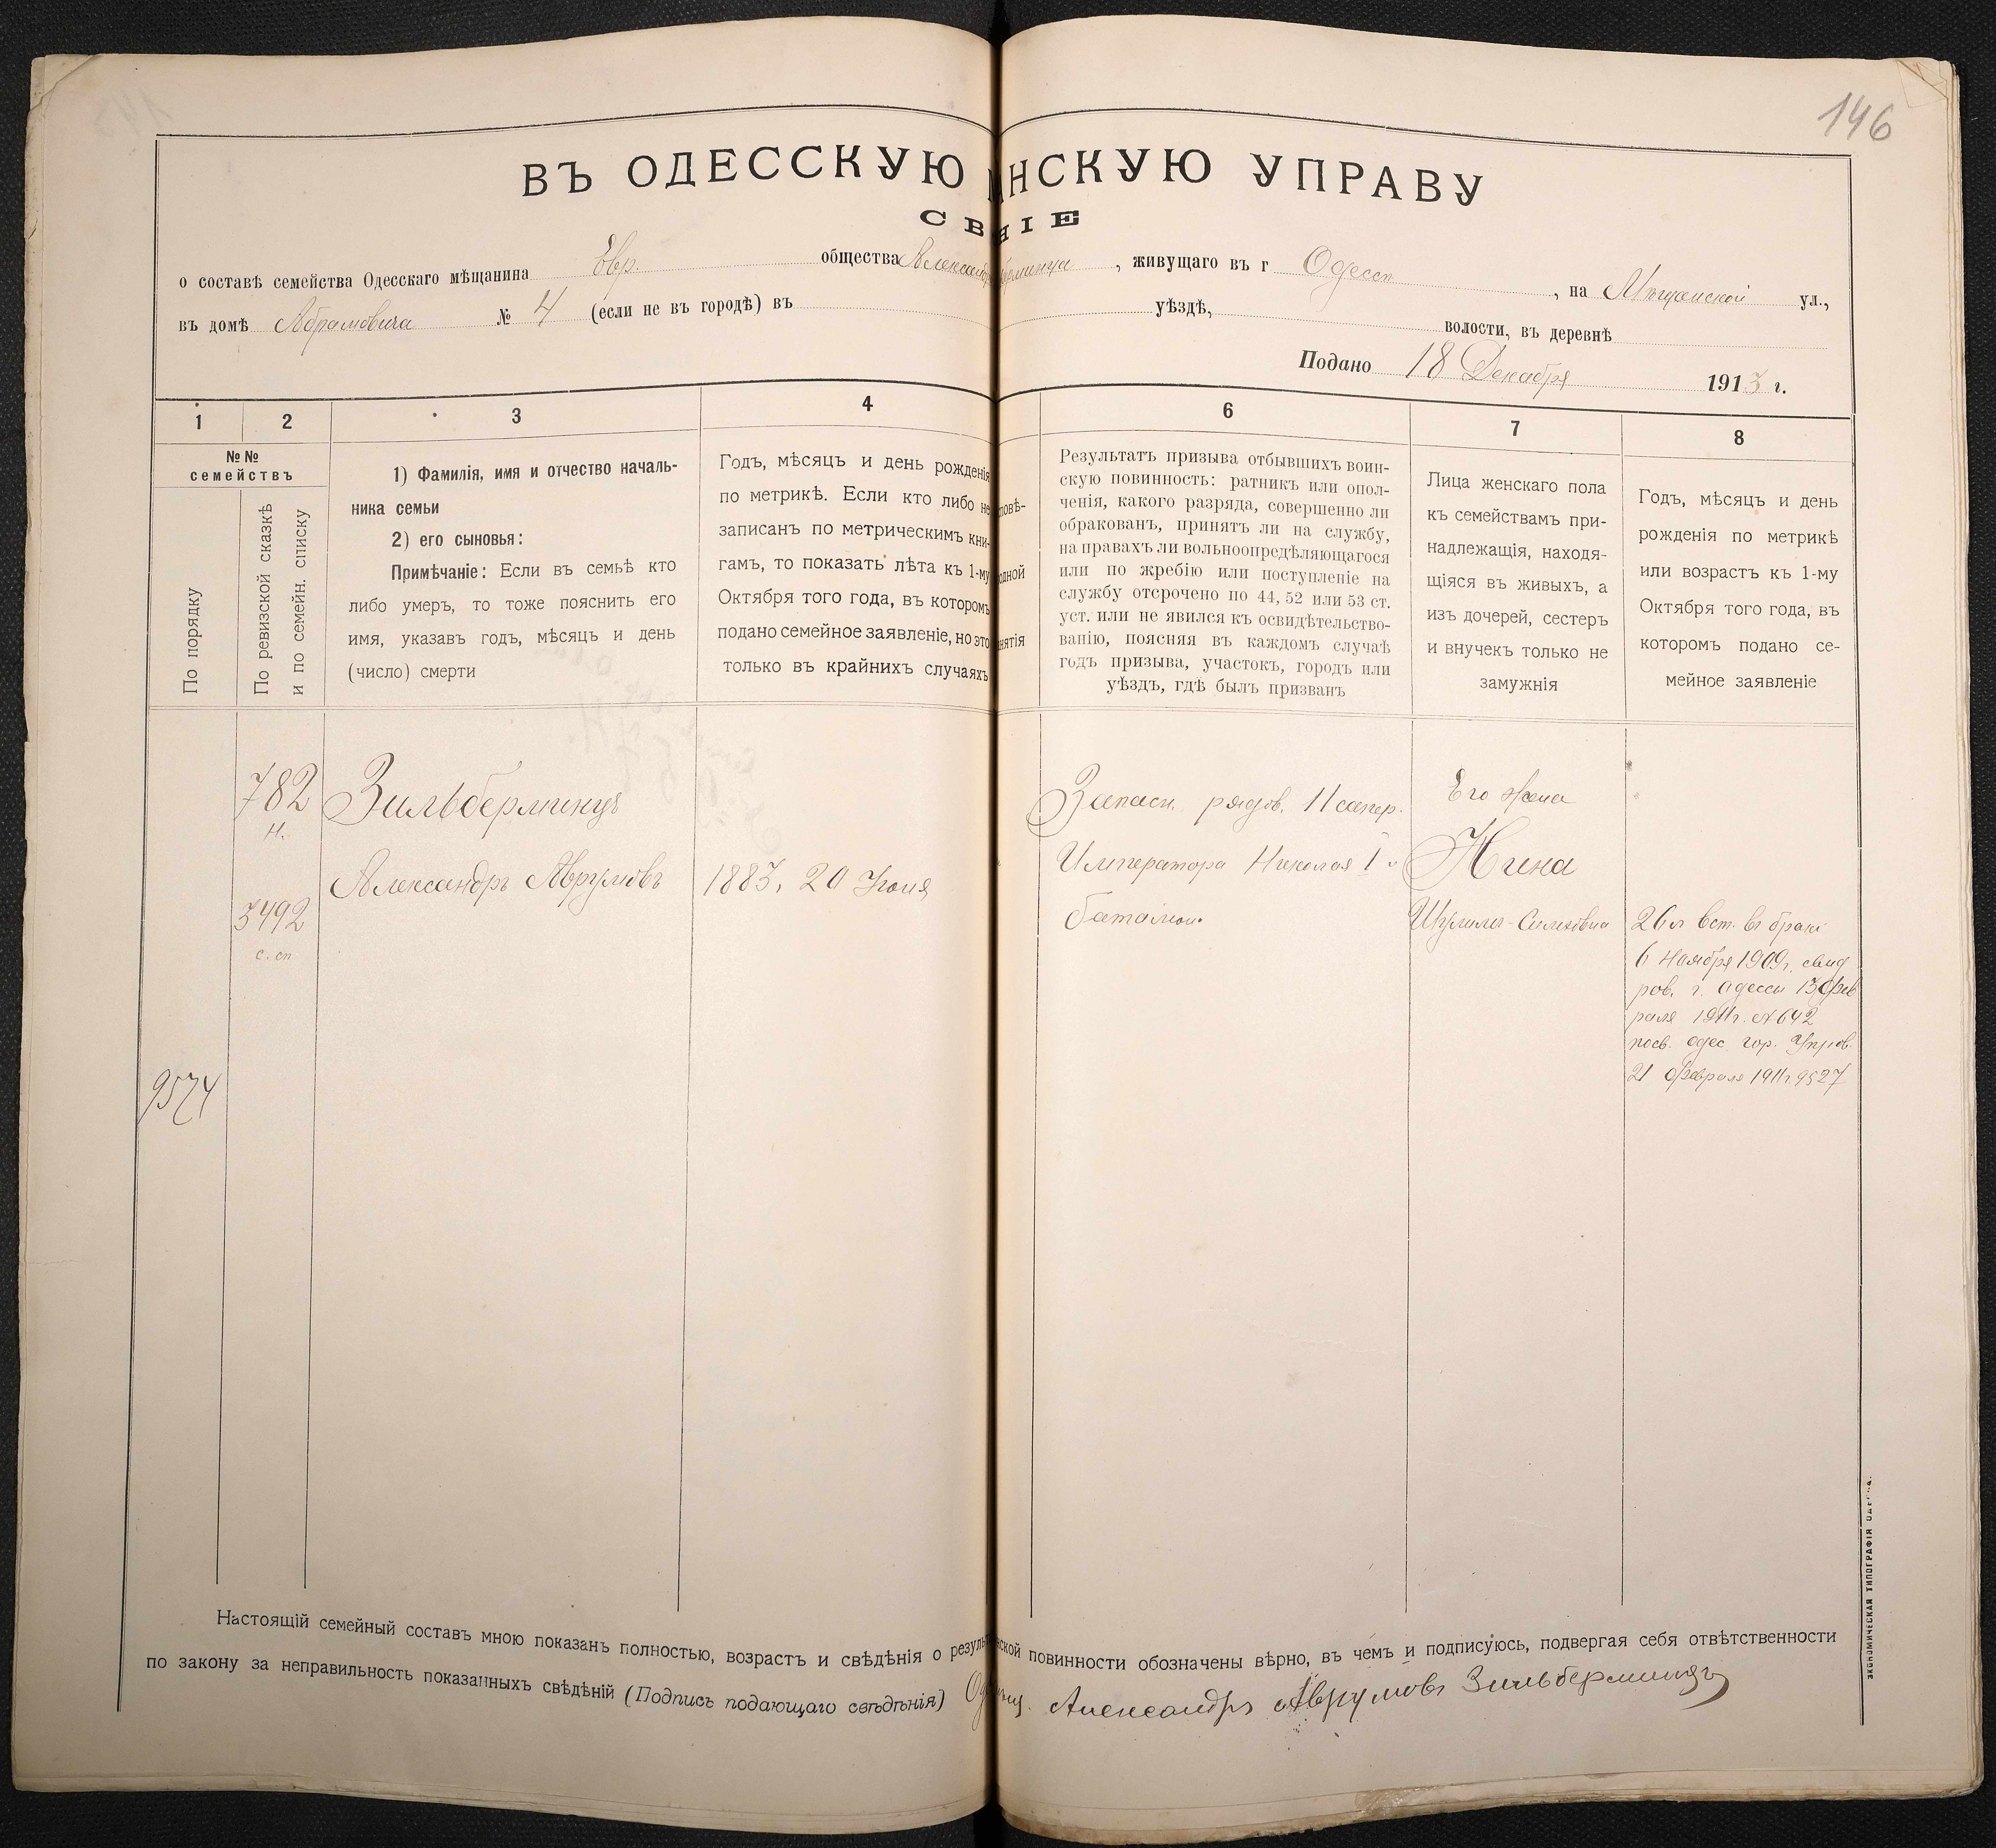 146
ВЪ ОДЕССКУЮ НСКУЮ УПРАВУ
СВ НІЕ
о составѣ семейства Одесскаго мѣщанина Евр. общества Александ рминца , живущаго въ г Одессѣ , на Мѣщанской ул.,
въ домѣ Абрамовича № 4 (если не въ городѣ) въ уѣздѣ, волости, въ деревнѣ
Подано 18 Декабря 1913 г.
1 2 3 4 6 7 8
№№
семействъ
По порядку
По ревизской сказкѣ
и по семейн. списку
1) Фамилія, имя и отчество началь-
ника семьи
2) его сыновья:
Примѣчаніе: Если въ семьѣ кто
либо умеръ, то тоже пояснить его
имя, указавъ годъ, мѣсяцъ и день
(число) смерти
Годъ, мѣсяцъ и день рожденія
по метрикѣ. Если кто либо не
записанъ по метрическимъ кни-
гамъ, то показать лѣта къ 1-му
Октября того года, въ которомъ
подано семейное заявленіе, но это
только въ крайнихъ случаяхъ
повѣ-
одной
нятія
Результатъ призыва отбывшихъ воин-
скую повинность: ратникъ или опол-
ченія, какого разряда, совершенно ли
обракованъ, принятъ ли на службу,
на правахъ ли вольноопредѣляющагося
или по жребію или поступленіе на
службу отсрочено по 44, 52 или 53 ст.
уст. или не явился къ освидѣтельство-
ванію, поясняя въ каждомъ случаѣ
годъ призыва, участокъ, городъ или
уѣздъ, гдѣ былъ призванъ
Лица женскаго пола
къ семействамъ при-
надлежащія, находя-
щіяся въ живыхъ, а
изъ дочерей, сестеръ
и внучекъ только не
замужнія
Годъ, мѣсяцъ и день
рожденія по метрикѣ
или возрастъ къ 1-му
Октября того года, въ
которомъ подано се-
мейное заявленіе
782
н.
3492
с. сп
9574
Зильберминцъ
Александръ Аврумовъ
1883, 20 Іюня
Запасн. рядов. 11 сапер.
Императора Николая I
баталіон.
Его жена
Нина
26 л вст. въ бракъ
6 Ноября 1909 г. свид
рав. г. Одессы 13 Фев
раля 1911 г. № 642
посв. Одес. гор. Управ.
21 Февраля 1911 г 9527
Настоящій семейный составъ мною показанъ полностью, возрастъ и свѣдѣнія о резуль нской повинности обозначены вѣрно, въ чемъ и подписуюсь, подвергая себя отвѣтственности
по закону за неправильность показанныхъ свѣдѣній (Подпись подающаго свѣдѣнія) Александръ Аврумовъ Зильберминцъ
ЭКОНОМИЧЕСКАЯ ТИПОГРАФІЯ